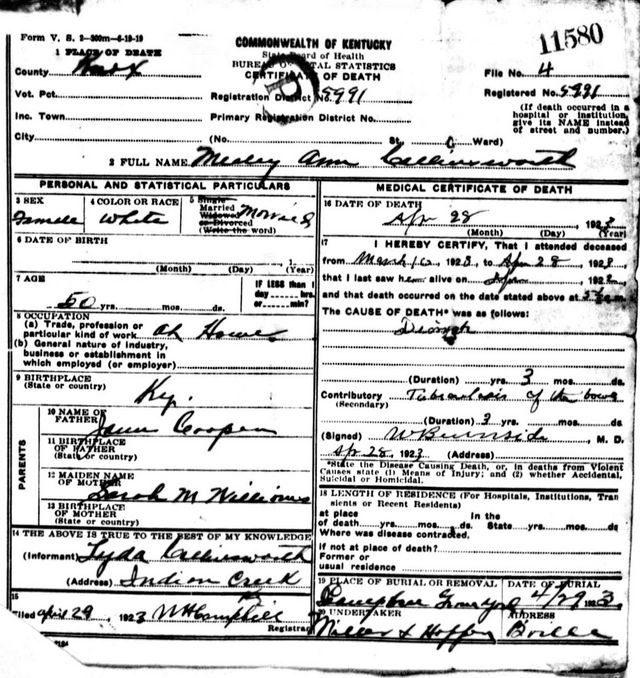 Form V. S. 2-300m-6-19-19
11580
1 PLACE OF DEATH
COMMONWEALTH OF KENTUCKY
State Board of Health
BUREAU OF VITAL STATISTICS
CERTIFICATE OF DEATH
County Knox
File No. 4
Vot. Pct.
Registration District No. 5991
Registered No. 5931
Inc. Town
Primary Registration District No.
(If death occurred in a hospital or institution, give its NAME instead of street and number.)
City (No. St. Ward)
2 FULL NAME Ann Collinsworth
PERSONAL AND STATISTICAL PARTICULARS
3 SEX
Famele
4 COLOR OR RACE
White
5 Single
Married
Widowed
or Divorced
(Write the word)
6 DATE OF BIRTH
(Month) (Day) (Year)
7 AGE
50 yrs. mos. ds.
IF LESS than 1
day hrs.
or min.?
8 OCCUPATION
(a) Trade, profession or
particular kind of work At
(b) General nature of industry,
business or establishment in
which employed (or employer)
9 BIRTHPLACE
(State or country)
Ky.
PARENTS
10 NAME OF
FATHER
Cooper
11 BIRTHPLACE
OF FATHER
(State or country)
12 MAIDEN NAME
OF MOTHER
Sarah M Williams
13 BIRTHPLACE
OF MOTHER
(State or country)
14 THE ABOVE IS TRUE TO THE BEST OF MY KNOWLEDGE
(Informant) Lyda Collinsworth
(Address) Indian Creek
Ky
15
Filed April 29, 1923 WH Campbell
Registrar
MEDICAL CERTIFICATE OF DEATH
16 DATE OF DEATH
Apr 28, 1923
(Month) (Day) (Year)
17 I HEREBY CERTIFY, That I attended deceased
from March 10, 1923, to Apr 28, 1923,
that I last saw her alive on , 192
and that death occurred on the date stated above at
The CAUSE OF DEATH* was as follows:
(Duration) yrs. 3 mos. ds.
Contributory Tuberculosis of the bowels
(Secondary)
(Duration) 3 yrs. mos. ds.
(Signed) W Burnside, M. D.
Apr 28, 1923 (Address)
*State the Disease Causing Death, or, in deaths from Violent
Causes state (1) Means of Injury; and (2) whether Accidental,
Suicidal or Homicidal.
18 LENGTH OF RESIDENCE (For Hospitals, Institutions, Tran
sients or Recent Residents)
at place In the
of death yrs. mos. ds. State yrs. mos. ds.
Where was disease contracted,
if not at place of death?
Former or
usual residence
19 PLACE OF BURIAL OR REMOVAL
Campbell Graveyard
DATE OF BURIAL
4/29 1923
20 UNDERTAKER
Miller & Hopper
ADDRESS
Bville